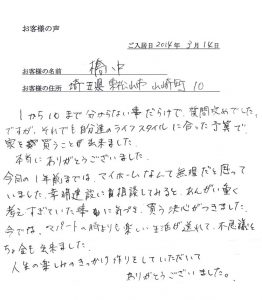 お客様の声
ご入居日 2014年 3月 14日
お客様の名前 橋本
お客様の住所 埼玉県 東松山市 山崎町 10
1から10まで分からない事だらけで、質問攻めでした。
ですが、それでも自分達のライフスタイルに合った予算で
家を買うことが出来ました。
本当にありがとうございました。
今回の1年前までは、マイホームなんて無理だと思って
いました。幸晴建設に直相談してみると、あんがい重く
考えすぎていた事に気づき、買う決心がつきました。
今では、アパートの時よりも楽しい生活が送れて、不思議と
お金も出来ました。
人生の楽しみのきっかけ作りをしていただいて
ありがとうございました。